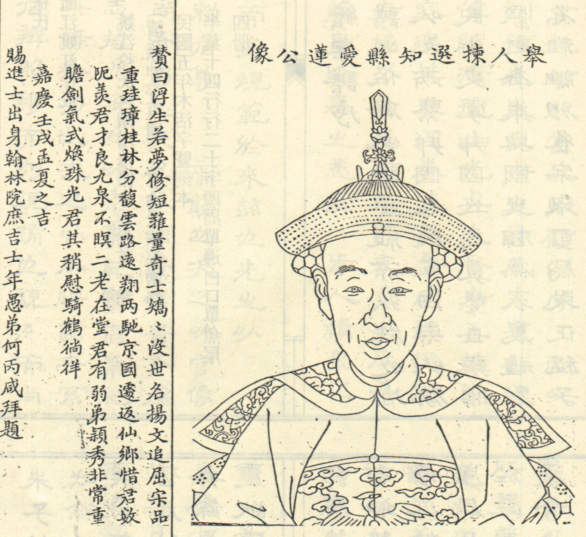 舉人揀選知縣愛蓮公像
贊曰浮生若夢修短難量奇士矯〻沒世名揚文追屈宋品
重珪璋桂林分馥雲路遠翔两馳京國遽返仙鄉惜君數
阨羨君才良九泉不瞑二老在堂君有弱弟穎秀非常重
瞻劍氣式煥珠光君其稍慰騎鶴徜徉
嘉慶壬戌孟夏之吉
賜進士出身翰林院庶吉士年愚弟何丙咸拜題